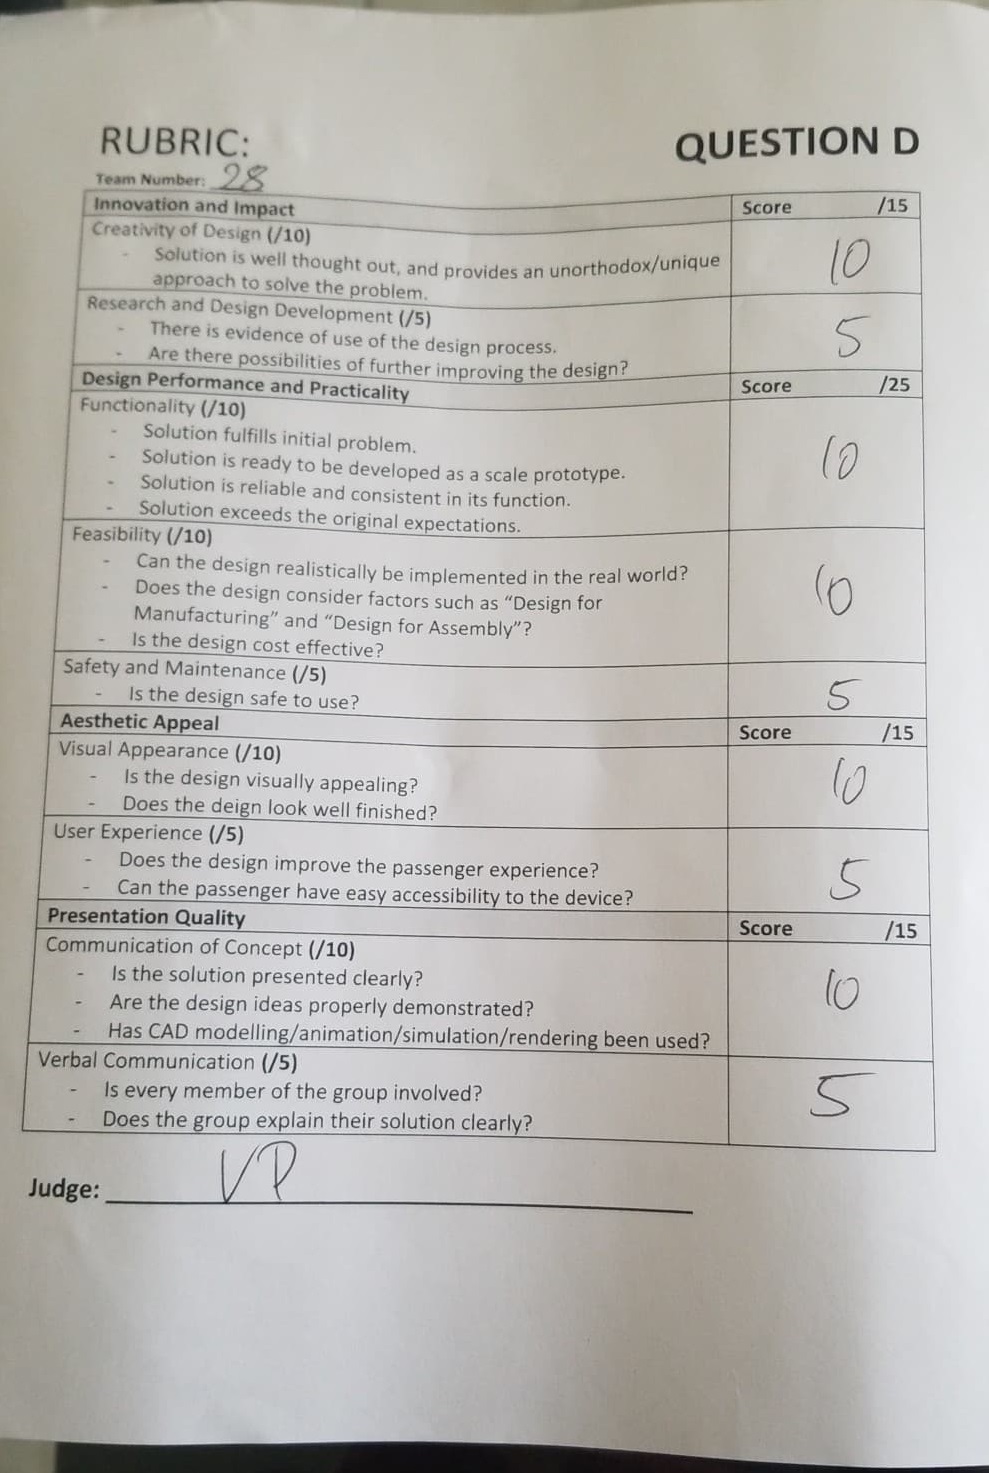 RUBRIC: QUESTION D
Team Number: 28
Innovation and Impact Score /15
Creativity of Design (/10) 10
- Solution is well thought out, and provides an unorthodox/unique
approach to solve the problem.
Research and Design Development (/5) 5
- There is evidence of use of the design process.
- Are there possibilities of further improving the design?
Design Performance and Practicality Score /25
Functionality (/10) 10
- Solution fulfills initial problem.
- Solution is ready to be developed as a scale prototype.
- Solution is reliable and consistent in its function.
- Solution exceeds the original expectations.
Feasibility (/10) 10
- Can the design realistically be implemented in the real world?
- Does the design consider factors such as “Design for
Manufacturing” and “Design for Assembly”?
- Is the design cost effective?
Safety and Maintenance (/5) 5
- Is the design safe to use?
Aesthetic Appeal Score /15
Visual Appearance (/10) 10
- Is the design visually appealing?
- Does the deign look well finished?
User Experience (/5) 5
- Does the design improve the passenger experience?
- Can the passenger have easy accessibility to the device?
Presentation Quality Score /15
Communication of Concept (/10) 10
- Is the solution presented clearly?
- Are the design ideas properly demonstrated?
- Has CAD modelling/animation/simulation/rendering been used?
Verbal Communication (/5) 5
- Is every member of the group involved?
- Does the group explain their solution clearly?
Judge: VP